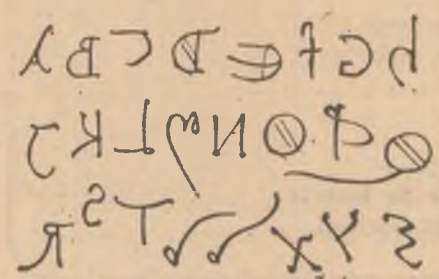 A B C D E f G h
J K L M N O P Q
R S T U V X Y Z